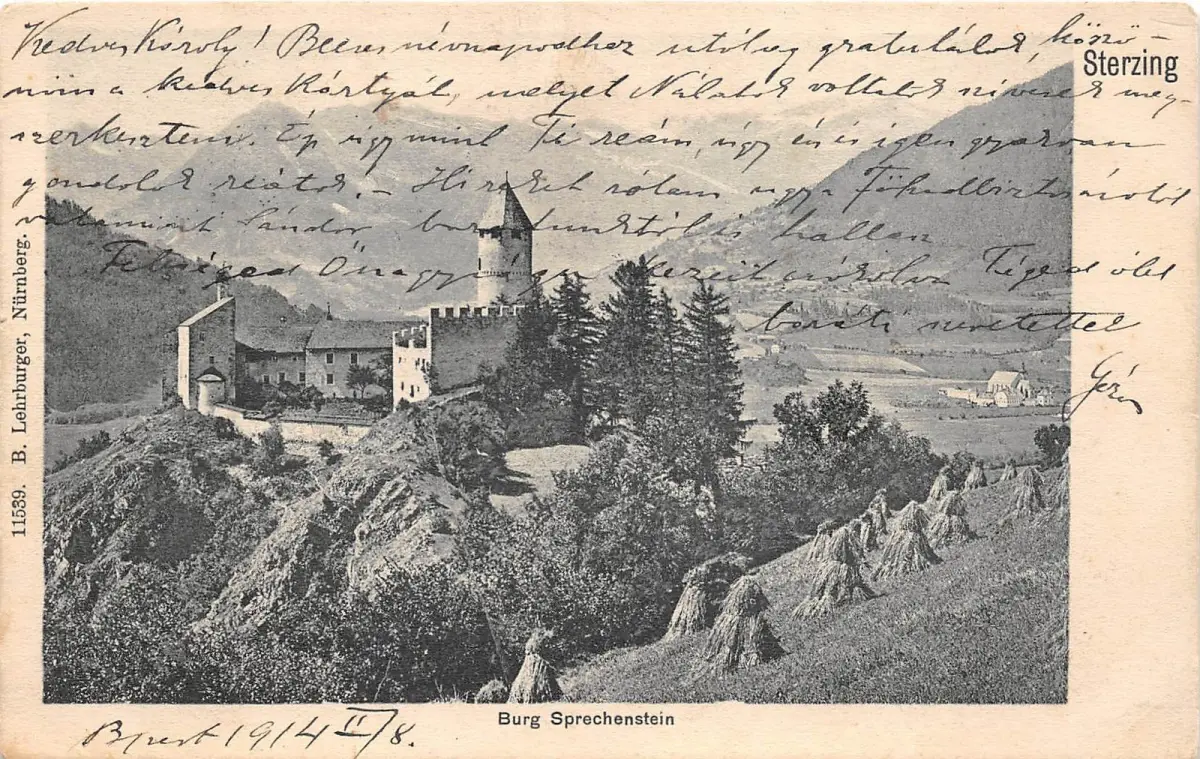 Kedves Károly! Becses névnapodhoz utólag gratulálok, köszö-
nöm a kedves kártyát, melyet Nálatok voltatok szivesek meg-
szerkeszteni. Ép úgy mint Ti reám, úgy én is igen gyakran
gondolok reátok. - Hireket rólam
valamint Sándor barátunktól is
Felséged Önagysága kezeit csókolva Téged ölel
baráti szeretettel
Géza
Sterzing
11539. B. Lehrburger, Nürnberg.
Burg Sprechenstein
Bpest 1914 II/8.